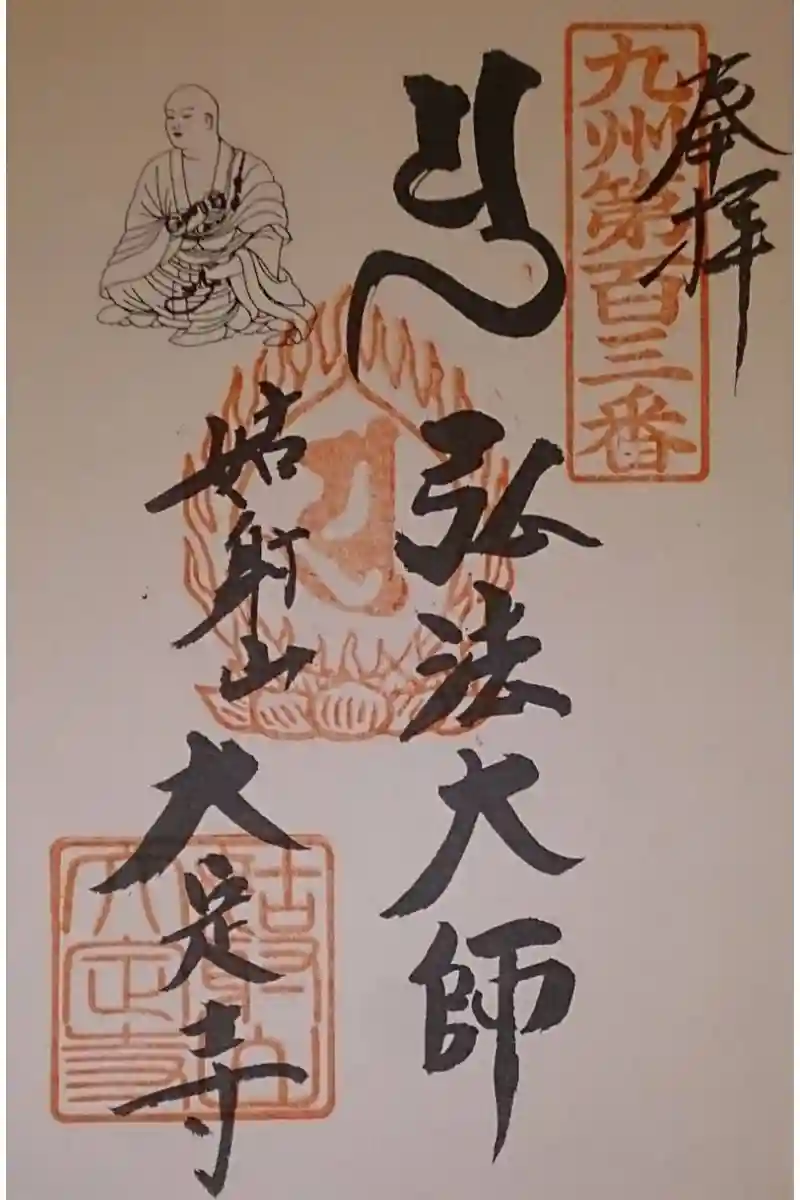 奉拝
九州第百三番
弘法大師
姑射山
大定寺
大定寺